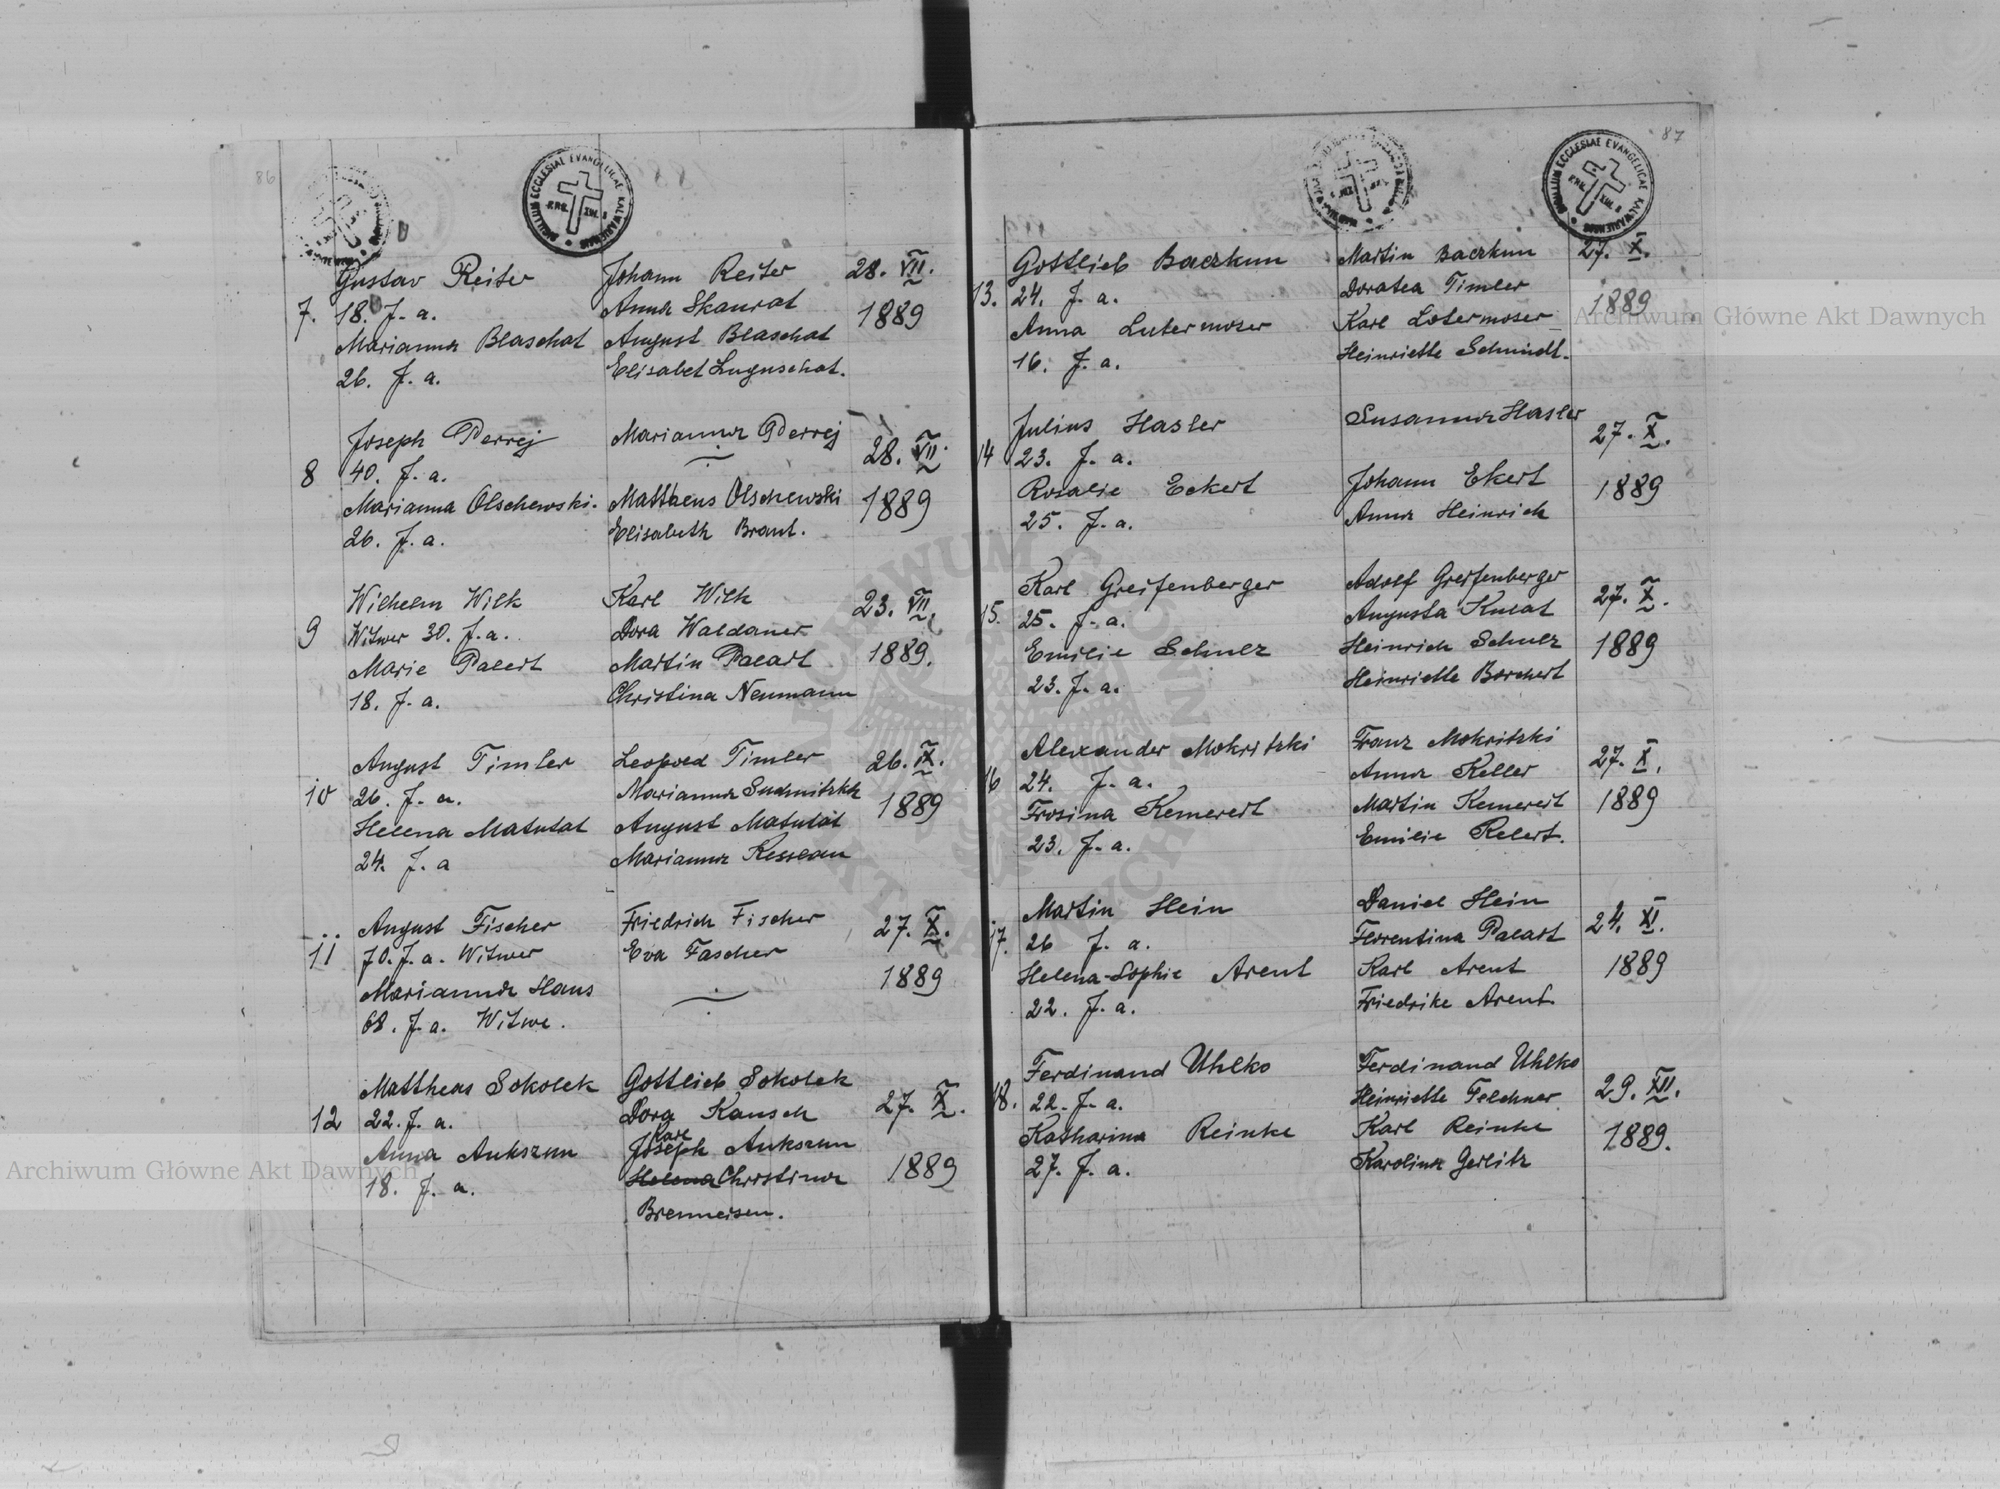 86
SIGILLUM ECCLESIAE EVANGELICAE KALWARIENSIS
7.
Gustav Reiter
18. J. a.
Marianna Blaschat
26. J. a.
Johann Reiter
Anna Skaurat
August Blaschat
Elisabet Luguschat.
28. VII.
1889
8
Joseph Perrej
40. J. a.
Marianna Olschewski.
26. J. a.
Marianna Perrej
Mattheus Olschewski
Elisabeth Brant.
28. VII.
1889
9
Wilhelm Wilk
Witwer 30. J. a.
Marie Palert
18. J. a.
Karl Wilk
Dora Waldauer
Martin Palart
Christina Neumann
23. VII.
1889.
10
August Timler
26. J. a.
Helena Matutat
24. J. a
Leopold Timler
Marianna Sudnitzka
August Matutat
Marianna Kesslau
26. IX.
1889
11
August Fischer
70. J. a. Witwer
Marianna Haus
68. J. a. Witwe.
Friedrich Fischer
Eva Fascher
27. X.
1889
12
Mattheas Sokolek
22. J. a.
Anna Aukszun
18. J. a.
Gottlieb Sokolek
Dora Kausch
Karl
Joseph Aukszun
Helena Christina
Brenneisen.
27. X.
1889
87
SIGILLUM ECCLESIAE EVANGELICAE KALWARIENSIS
13.
Gottlieb Baczkun
24. J. a.
Anna Lutermoser
16. J. a.
Martin Baczkun
Doratea Timler
Karl Lotermoser
Heinriette Schmidt.
27. X.
1889
14
Julius Hasler
23. J. a.
Rosalie Eckert
25. J. a.
Susanna Hasler
Johann Ekert
Anna Heinrich
27. X.
1889
15.
Karl Greifenberger
25. J. a.
Emilie Schulz
23. J. a.
Adolf Greifenberger
Augusta Kulat
Heinrich Schulz
Heinriette Borchert
27. X.
1889
16
Alexander Mokritzki
24. J. a.
Frosina Kemerert
23. J. a.
Franz Mokritzki
Anna Keller
Martin Kemerert
Emilie Relert.
27. X.
1889
17.
Martin Hein
26 J. a.
Helena-Sophie Arent
22. J. a.
Daniel Hein
Florentina Palart
Karl Arent
Friedrike Arent.
24. XI.
1889
18.
Ferdinand Uhlko
22. J. a.
Katharina Reinke
27. J. a.
Ferdinand Uhlko
Heinriette Felchner
Karl Reinke
Karolina Gerlitz
29. XII.
1889.
Archiwum Główne Akt Dawnych
Archiwum Główne Akt Dawnych